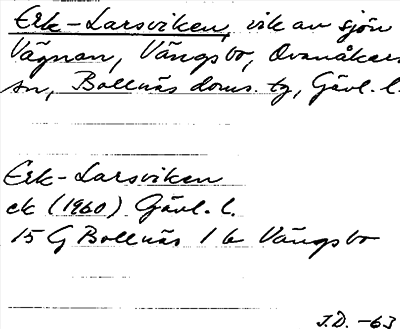 Erk-Larsviken, vik av sjön
Vägnan, Vängsbo, Ovanåkers
sn, Bollnäs doms. tg, Gävl. l.
Erk-Larsviken
ek (1960) Gävl. l.
15 G Bollnäs 1 b Vängsbo
J.D. -63